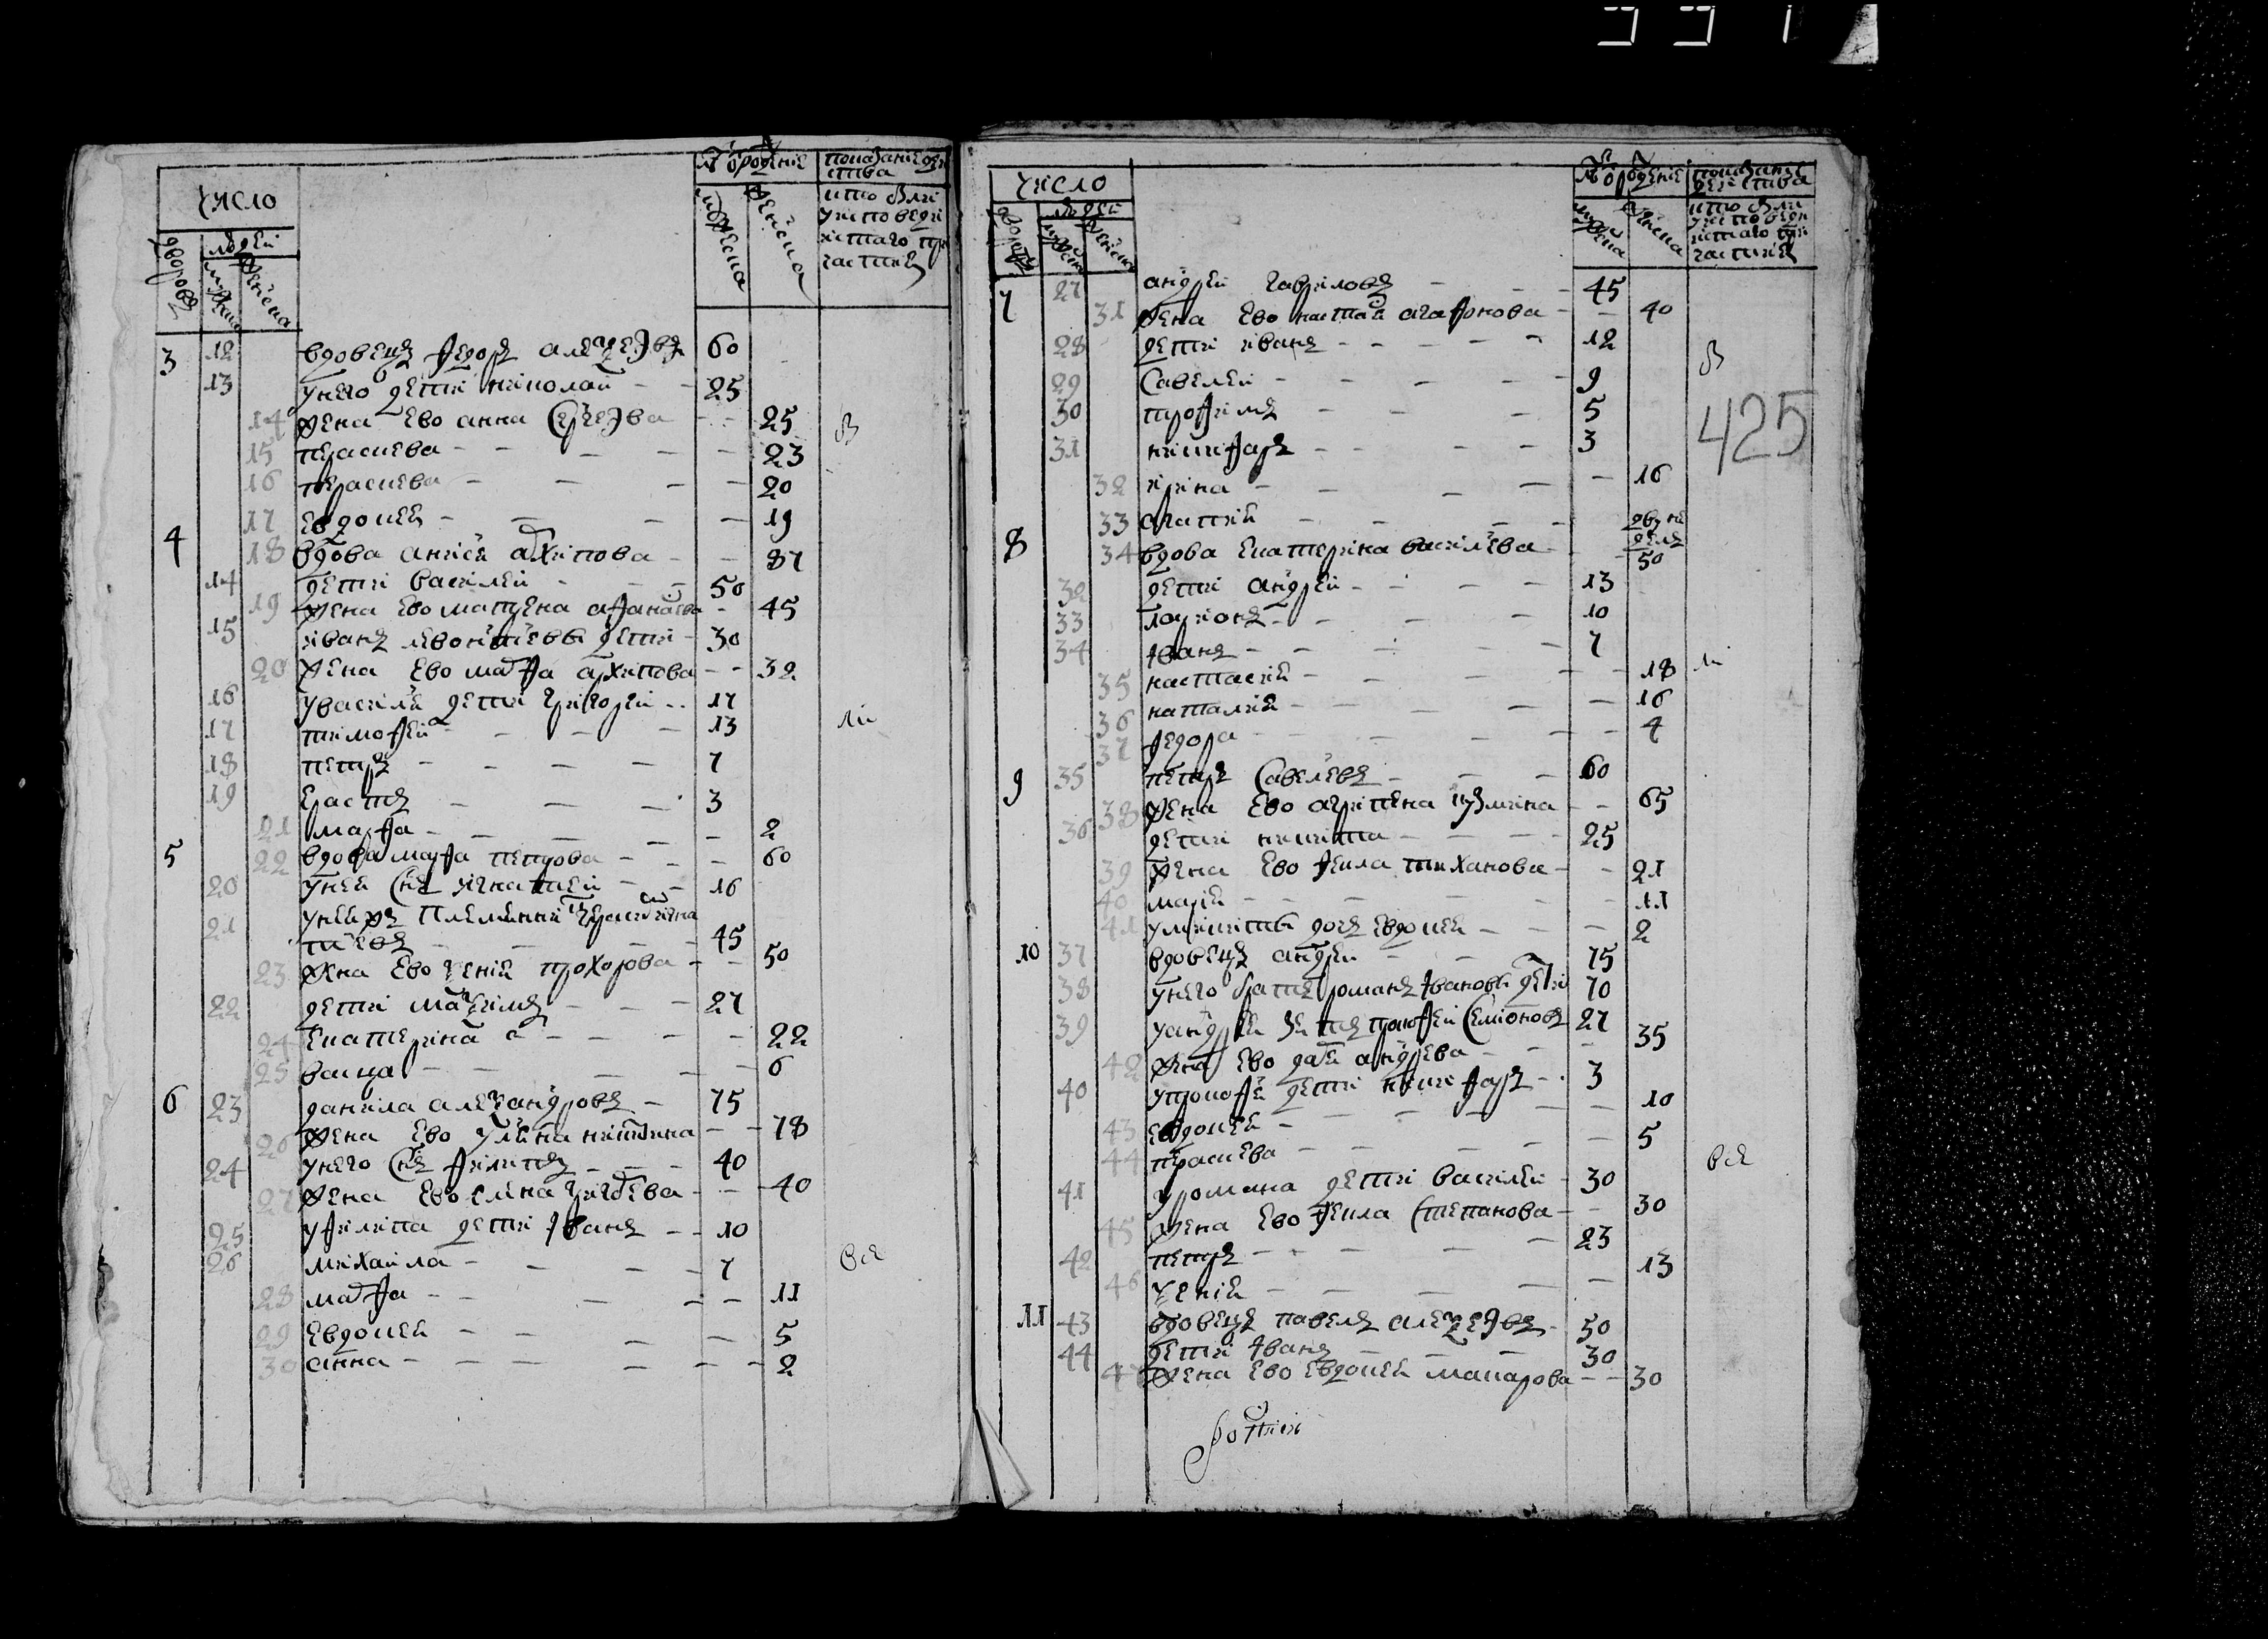 число
дворовъ
людей
мужеска
женска
ѿ рожденiя
мужеска
женска
показанiе дей
ства
кто былъ
у исповеди
и стаго пр
частия
3 12 вдовецъ Ѳедоръ алеѯеевъ 60
13 у него дети николай - - 25
14 жена ево анна Сергеева - - 25
15 параскева - - - - - 23
16 параскева - - - - 20
17 евдокея - - - - 19
4 18 вдова анисия архипова - - 87
14 дети василей - - - 50
19 жена ево матрена аѳанасева - 45
15 иванъ левонтиевъ дети - 30
20 жена ево марѳа архипова - - 32
16 у василя дети григорей - - 17
17 тимоѳей - - - - 13
18 петръ - - - - 7
19 ерастъ - - - 3
21 марѳа - - - - - 2
5 22 вдова марѳа петрова - - - 60
20 у ней снъ игнатей - - 16
21 у нея жъ племянникъ герасимъ игна
тиевъ - - - - 45
23 жена ево ѯения прохорова - - 50
22 дети маѯимъ - - - 27
24 екатерина - - - - 22
25 васиса - - - - - 6
6 23 данила алеѯандровъ - 75
26 жена ево улияна никитина - - 78
24 у него снъ ѳилипъ - - - 40
27 жена ево елена григорева - - - 40
25 у ѳилипа дети ѳванъ - - 10
26 михаила - - - - 7
28 марѳа - - - - - 11
29 евдокея - - - - 5
30 анна - - - - - - 2
въ
ли
вся
число
дворовъ
людей
мужеска
женска
ѿ рожденiя
мужеска
женска
показание
действа
кто были
у исповеди
и стаго при
частия
7 27 андрей гавриловъ - - - 45
31 жена ево настасия агаѳонова - - 40
28 дети иванъ - - - - - 12
29 Савелей - - - - - 9
30 троѳимъ - - - 5
31 никиѳаръ - - - - 3
32 ирина - - - - - 16
33 агапия - - - - двух не
дель
8 34 вдова екатерина василева - - 50
32 дети андрей - - - - 13
33 ларионъ - - - - 10
34 ѳванъ - - - - 7
35 настасия - - - - - 18
36 наталия - - - - - 16
37 ѳедора - - - - - 4
9 35 петръ Савелевъ - - - 60
38 жена ево агрипена кузмина - - 65
36 дети никита - - - - 25
39 жена ево ѳекла тиханова - - 21
40 мария - - - - - 11
41 у никиты дочь евдокея - - - 2
10 37 вдовецъ андрей - - 75
38 у него братъ романъ ѳвановы дети 70
39 у андрея зять прокоѳей Семионовъ 27
42 жена ево даря андреева - - - 35
40 у прокоѳя дети никиѳаръ - - 3
43 евдокея - - - - - - 10
44 параскева - - - - - 5
41 у романа дети василей - 30
45 жена ево ѳекла Степанова - - 30
42 петръ - - - - - 23
46 ѯения - - - - - 13
11 43 вдовецъ павелъ алеѯеевъ - 50
44 дети ѳванъ - - - 30
47 жена ево евдокея макарова - - 30
въ
425
ли
вся